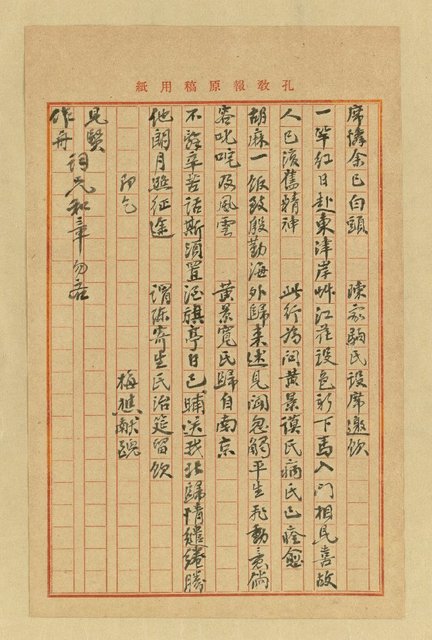 孔教報原稿用紙
席憐余已白頭　陳家駒氏設席邀飲
一竿紅日赴東津岸艸江花設色新下馬入門相見喜故
人已復舊精神　此行為问黃景謨氏病氏已痊愈
胡麻一飯致殷勤海外歸来述見闻忽觸平生飛動意倘
容叱咤及風雲　黃景寬氏歸自南京
不辭辛苦話斯須置酒旗亭日已晡送我歸情繾綣勝
他明月照征途　謂陳寄生氏治筵留飲
卽乞　梅樵献醜
見賢
作舟　詞兄和章勿吝